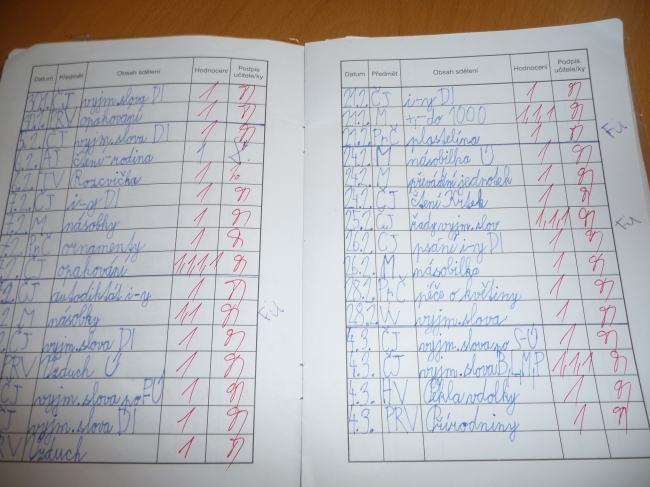 Datum Předmět Obsah sdělení Hodnocení Podpis učitele/ky
ČJ vyjm. slova DÚ 1
PRV opakování 1
5.2. ČJ vyjm. slova DÚ 1
6.2. AJ čtení-rodina 1
TV Rozcvička 1
7.2. ČJ i-y DÚ 1
M násobky 1
PnČ ornamenty 1
ČJ opakování 1,1,1,1
ČJ autodiktát i-y 1
M násobky 1,1
ČJ vyjm. slova DÚ 1
PRV Vzduch Ú 1
ČJ vyjm. slova po P Ú 1
ČJ vyjm. slova DÚ 1
PRV Vzduch 1
Datum Předmět Obsah sdělení Hodnocení Podpis učitele/ky
21.2. ČJ i-y DÚ 1
21.2. M +,- do 1000 1,1,1
21.2. PnČ plastelína 1
24.2. M násobilka Ú 1
24.2. M převádění jednotek 1
24.2. ČJ čtení Křtek 1
25.2. ČJ řady vyjm. slov 1,1,1
26.2. ČJ psané i-y DÚ 1
26.2. M násobilka 1
28.2. PnČ péče o květiny 1
28.2. W vyjm. slova 1
4.3. ČJ vyjm. slova po S-Ú 1
4.3. ČJ vyjm. slova B, L, M, P 1,1,1
4.3. HV Čtvrtky 1
4.3. PRV Přírodniny 1